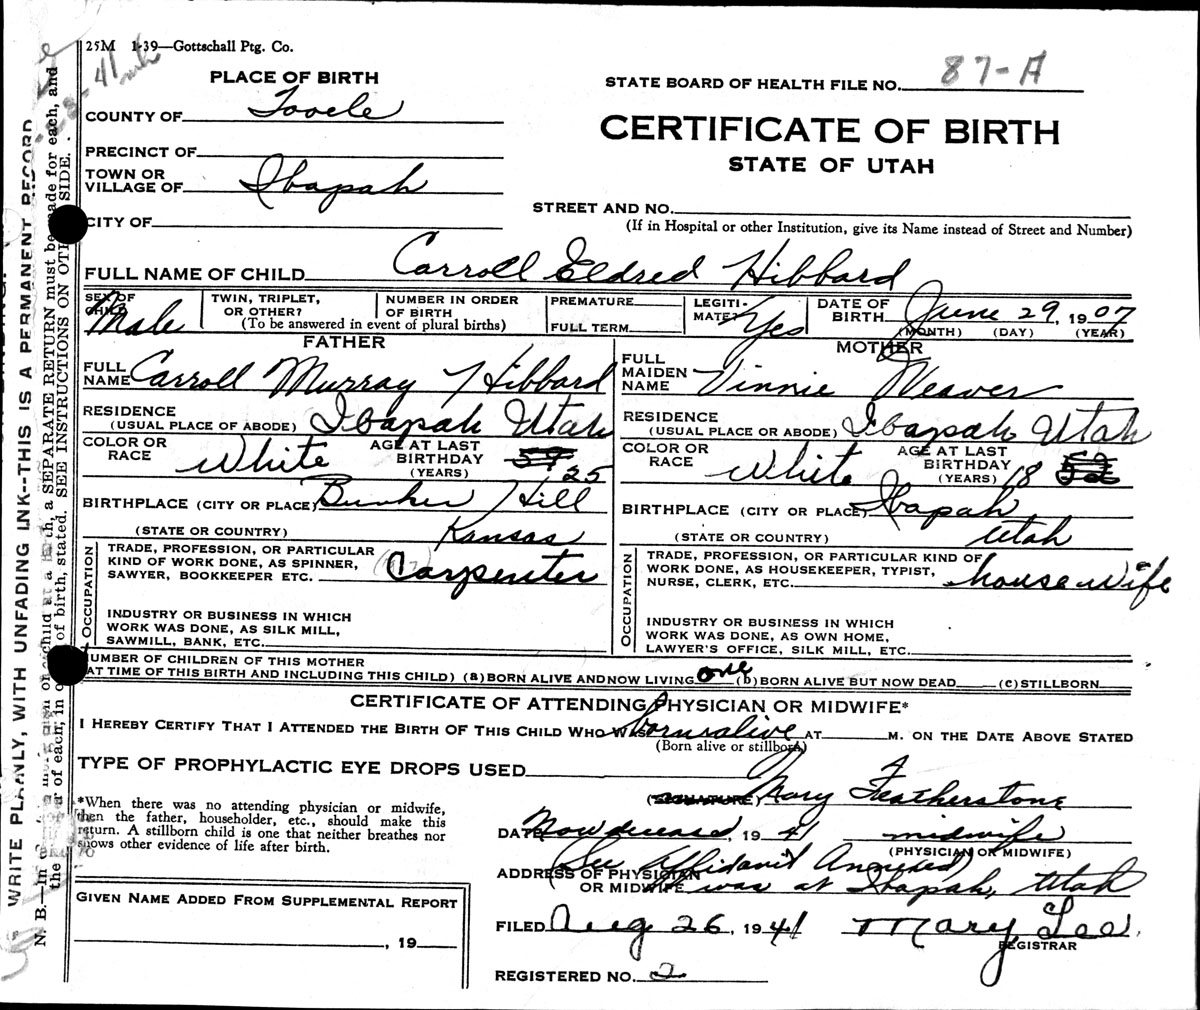 25M 1-39—Gottschall Ptg. Co.
PLACE OF BIRTH
STATE BOARD OF HEALTH FILE NO. 87-A
COUNTY OF Tooele
CERTIFICATE OF BIRTH
STATE OF UTAH
PRECINCT OF
TOWN OR VILLAGE OF Ibapah
CITY OF
STREET AND NO.
(If in Hospital or other Institution, give its Name instead of Street and Number)
FULL NAME OF CHILD Carroll Eldred Hibbard
SEX OF CHILD Male
TWIN, TRIPLET, OR OTHER?
NUMBER IN ORDER OF BIRTH
(To be answered in event of plural births)
PREMATURE
FULL TERM
LEGITIMATE? Yes
DATE OF BIRTH June 29, 1907
(MONTH) (DAY) (YEAR)
FATHER
FULL NAME Carroll Murray Hibbard
RESIDENCE (USUAL PLACE OF ABODE) Ibapah Utah
COLOR OR RACE White
AGE AT LAST BIRTHDAY (YEARS) 59 25
BIRTHPLACE (CITY OR PLACE) Bunker Hill
(STATE OR COUNTRY) Kansas
OCCUPATION
TRADE, PROFESSION, OR PARTICULAR
KIND OF WORK DONE, AS SPINNER,
SAWYER, BOOKKEEPER ETC. Carpenter
INDUSTRY OR BUSINESS IN WHICH
WORK WAS DONE, AS SILK MILL,
SAWMILL, BANK, ETC.
MOTHER
FULL MAIDEN NAME Vinnie Weaver
RESIDENCE (USUAL PLACE OR ABODE) Ibapah Utah
COLOR OR RACE White
AGE AT LAST BIRTHDAY (YEARS) 18 52
BIRTHPLACE (CITY OR PLACE) Ibapah
(STATE OR COUNTRY) Utah
OCCUPATION
TRADE, PROFESSION, OR PARTICULAR KIND OF
WORK DONE, AS HOUSEKEEPER, TYPIST,
NURSE, CLERK, ETC. housewife
INDUSTRY OR BUSINESS IN WHICH
WORK WAS DONE, AS OWN HOME,
LAWYER'S OFFICE, SILK MILL, ETC.
NUMBER OF CHILDREN OF THIS MOTHER
AT TIME OF THIS BIRTH AND INCLUDING THIS CHILD) (a) BORN ALIVE AND NOW LIVING one (b) BORN ALIVE BUT NOW DEAD (c) STILLBORN
CERTIFICATE OF ATTENDING PHYSICIAN OR MIDWIFE*
I HEREBY CERTIFY THAT I ATTENDED THE BIRTH OF THIS CHILD WHO WAS born alive AT M. ON THE DATE ABOVE STATED
(Born alive or stillborn)
TYPE OF PROPHYLACTIC EYE DROPS USED
*When there was no attending physician or midwife,
then the father, householder, etc., should make this
return. A stillborn child is one that neither breathes nor
shows other evidence of life after birth.
(SIGNATURE) Mary Featherstone
DATE Now deceased, 1941 midwife
(PHYSICIAN OR MIDWIFE)
(See Affidavit Annexed)
ADDRESS OF PHYSICIAN
OR MIDWIFE was at Ibapah, Utah
GIVEN NAME ADDED FROM SUPPLEMENTAL REPORT
, 19
FILED Aug 26, 1941 Mary Lee
REGISTRAR
REGISTERED NO. 2
WRITE PLAINLY, WITH UNFADING INK--THIS IS A PERMANENT RECORD
a SEPARATE RETURN must be made for each, and
of birth, stated. SEE INSTRUCTIONS ON
SIDE.